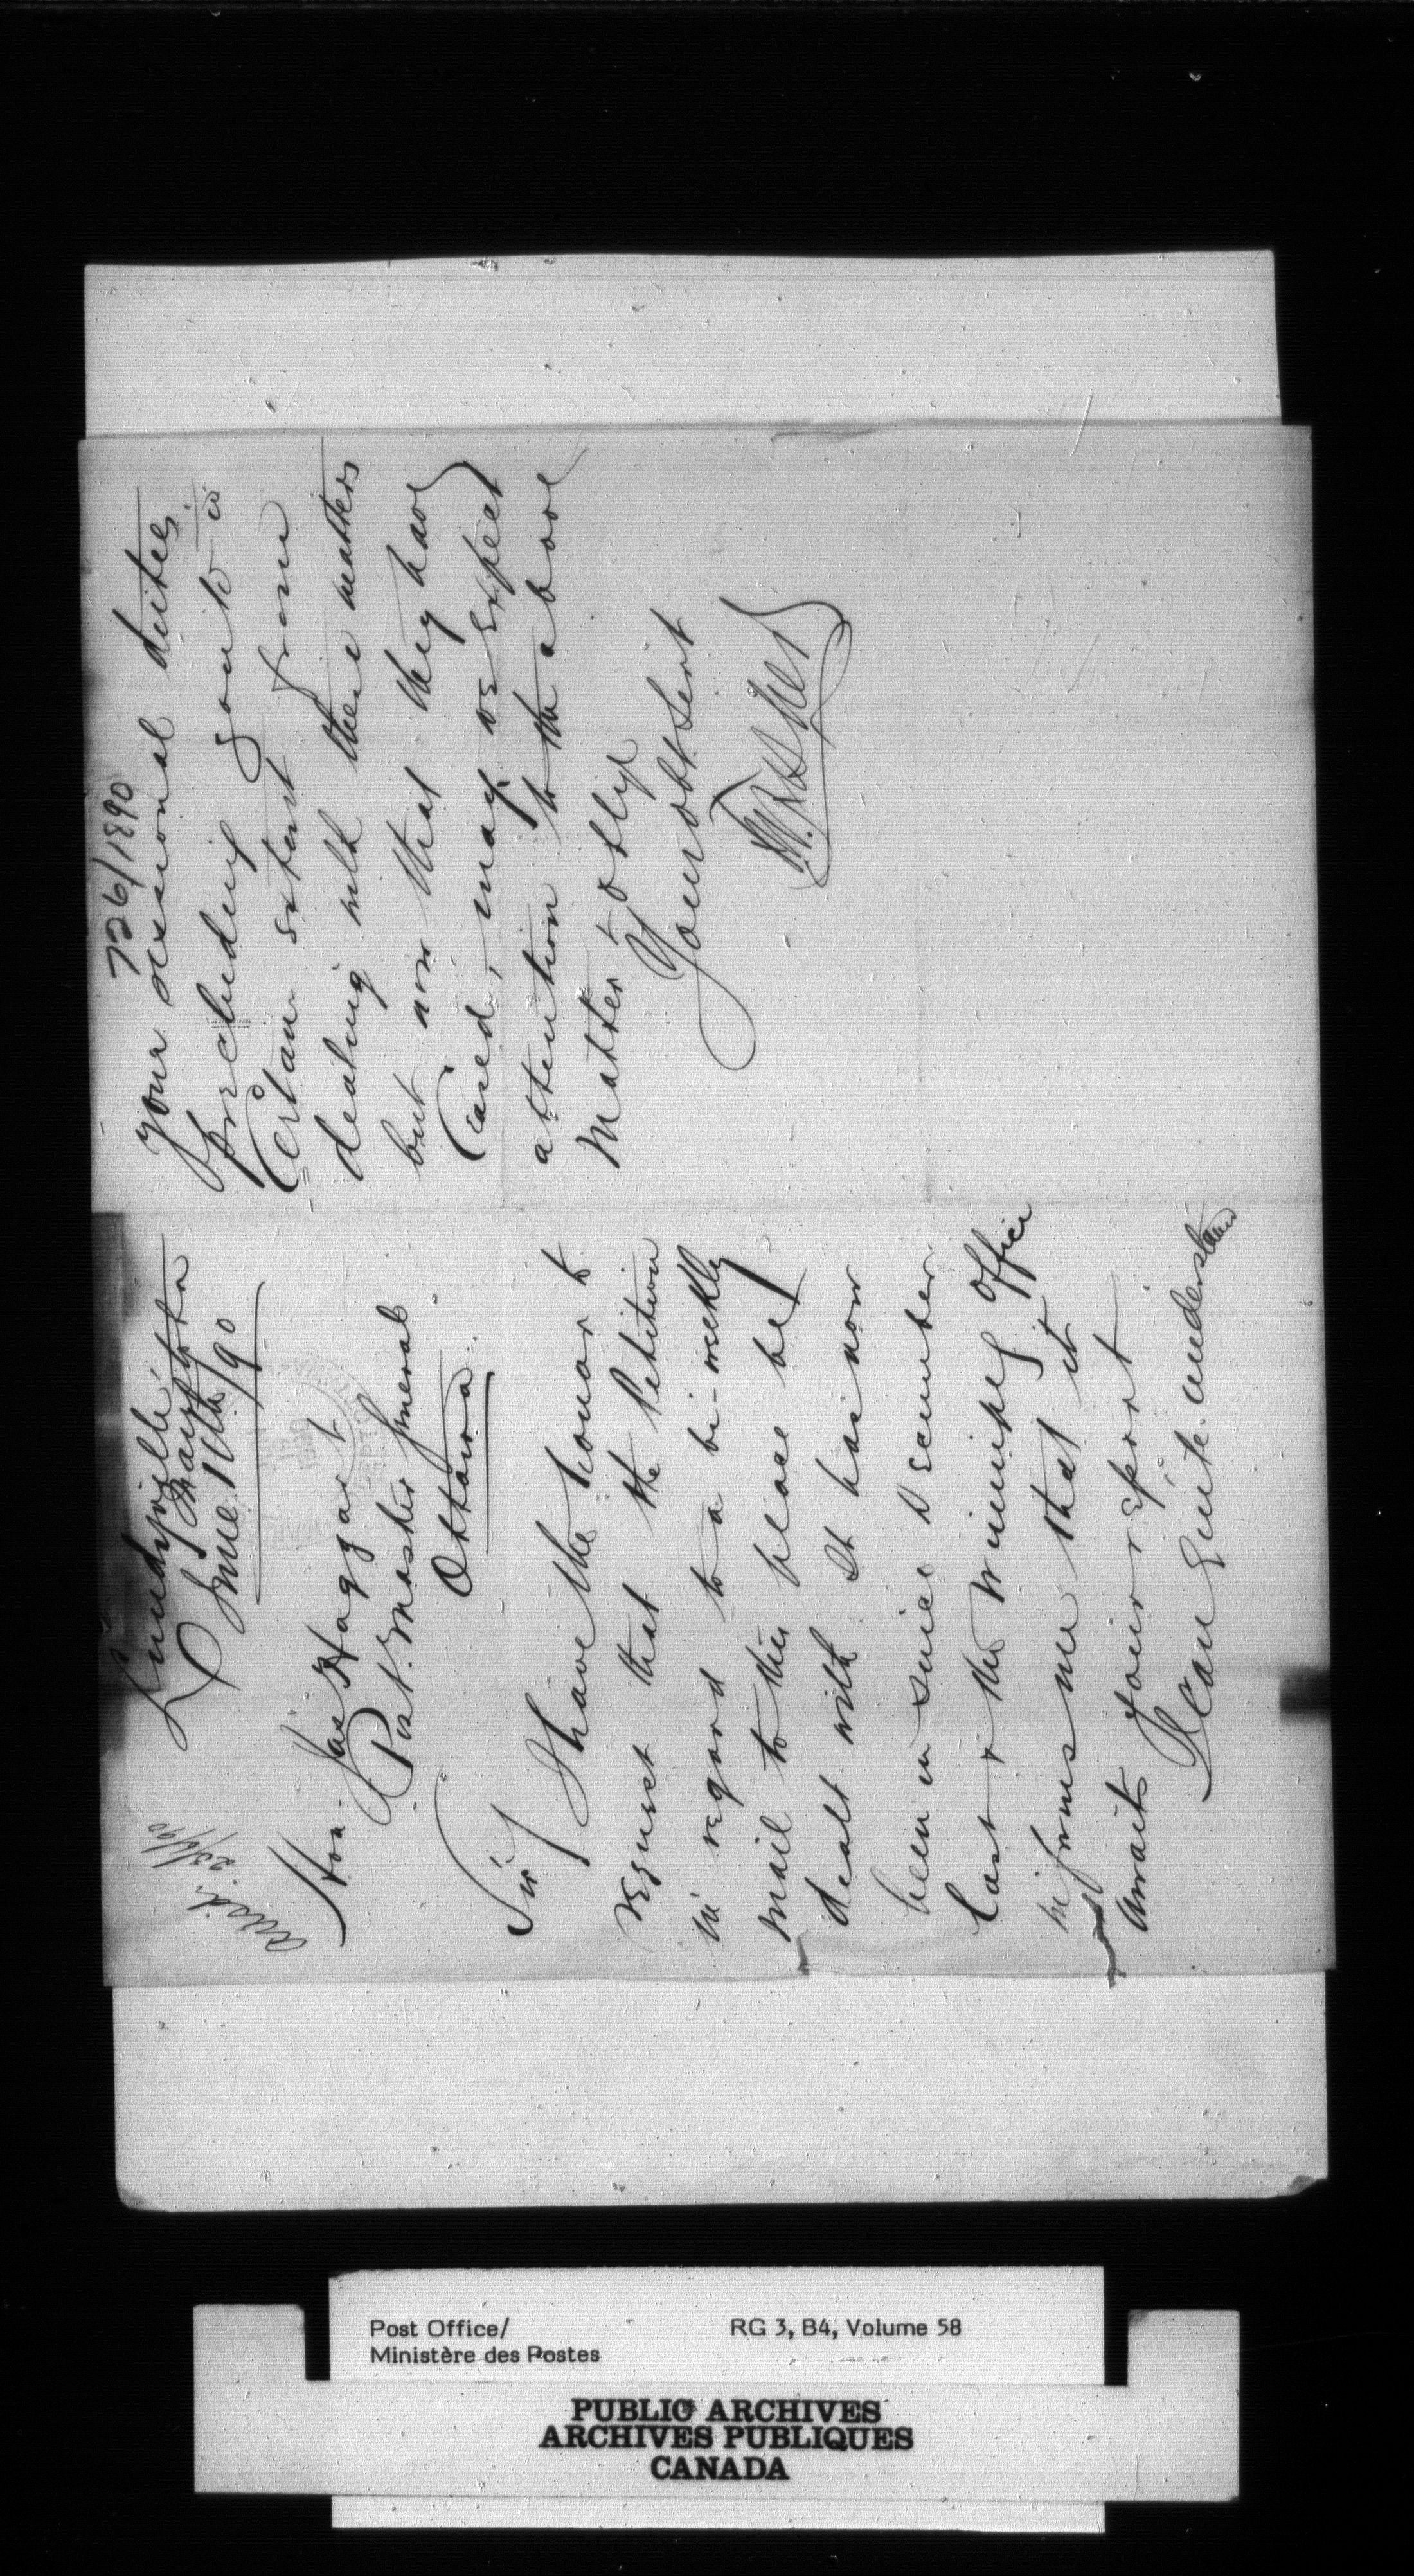 Lundyville
Manitoba
June 16th/90
ansd. 23/6/90
Hon. Jno Haggart
Post. Master General
Ottawa.
Sir/
I have the honour to
request that the Petition
in regard to a bi-weekly
mail to this place be
dealt with It has now
been in since December
last & the Winnipeg Office
informs me that it
awaits your report
I can quite understand
726/1890
your sessional duties.
precluding you to a
Certain extent from
dealing with these matters
but now that they have
Ceased, may we expect
attention to the above
Matter &
Your obt Servt
Post Office/
Ministère des Postes
RG 3, B4, Volume 58
PUBLIC ARCHIVES
ARCHIVES PUBLIQUES
CANADA